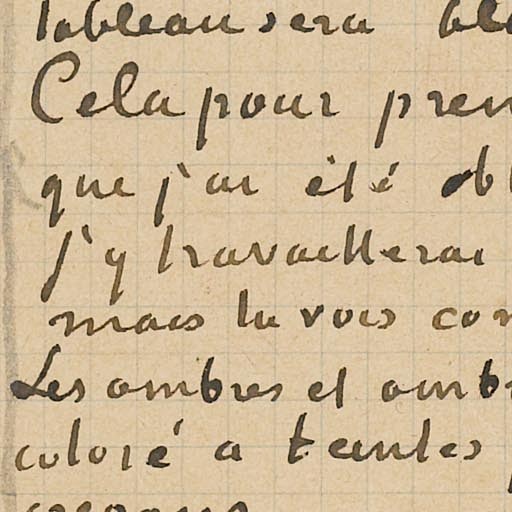 Tableau sera bl
Cela pour pren
que j'ai été obl
j'y travaillerai
mais tu vois com
Les ombres et ombr
coloré a teintes
crepons